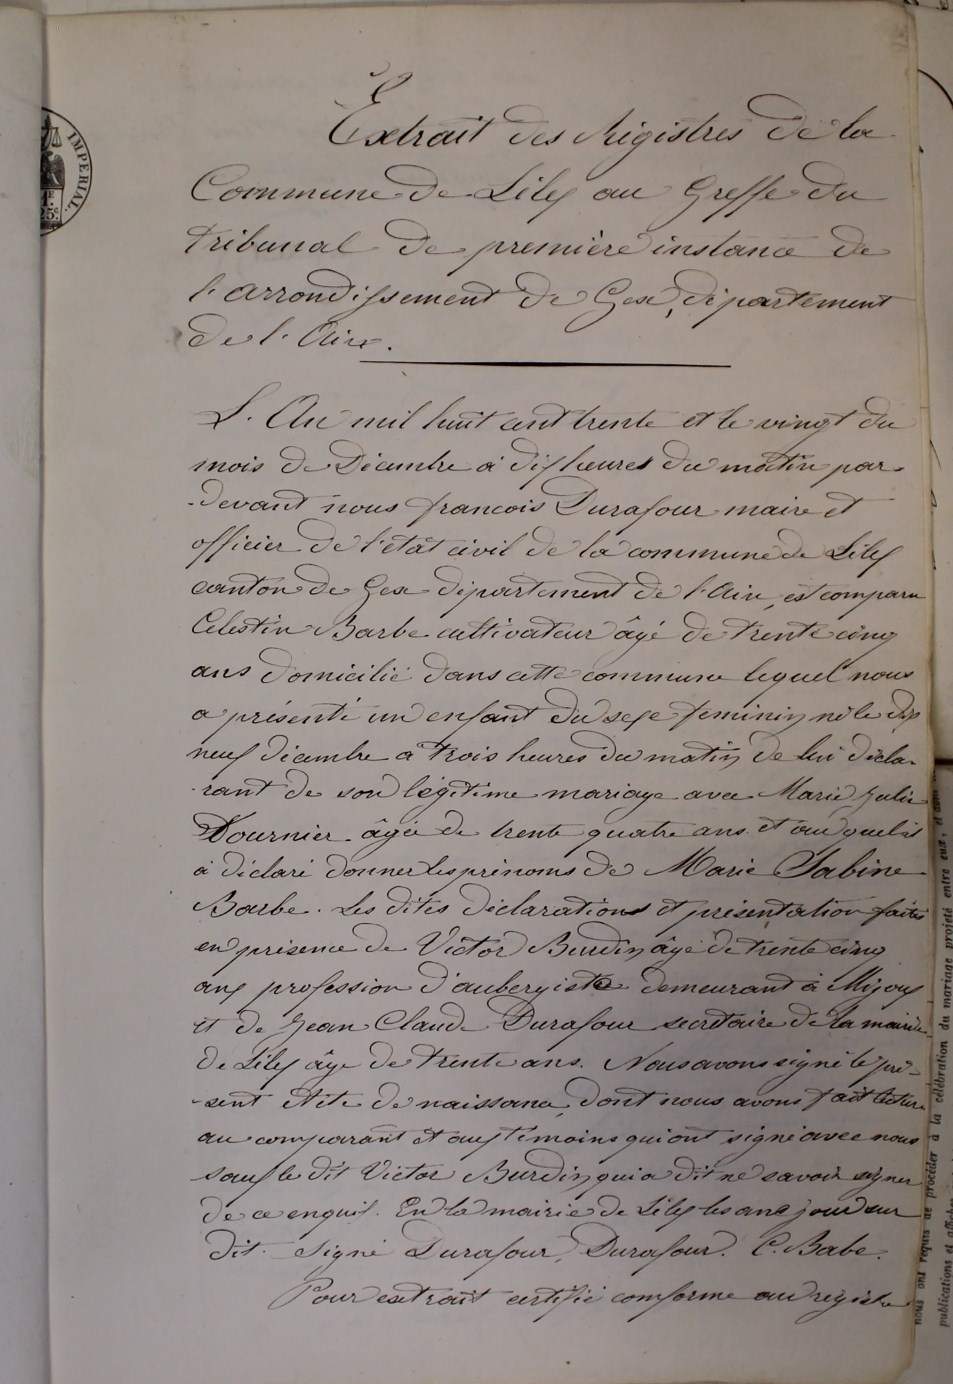 IMPERIAL.
25c
Extrait des Régistres de la
Commune de Lélex au Greffe du
tribunal de première instance de
l'arrondissement de Gex, département
de l'Ain.
L'An mil huit cent trente et le vingt du
mois de Décembre à dix heures du matin par-
-devant nous françois Durafour maire et
officier de l'état civil de la commune de Lélex
canton de Gex département de l'Ain, est comparu
Celestin Barbe cultivateur âgé de trente cinq
ans domicilié dans cette commune lequel nous
a présenté un enfant du sexe feminin né le dix
neuf décembre à trois heures du matin de lui décla-
-rant de son légitime mariage avec Marie Julie
Tournier âgée de trente quatre ans et au quel il
à déclaré donner les prénoms de Marie Sabine
Barbe. Les dites déclarations et présentation faites
en présence de Victor Burdin âgé de trente cinq
ans profession d'aubergiste demeurant à Mijoux
et de Jean Claude Durafour secrétaire de la mairie
de Lélex âgé de trente ans. Nous avons signé le pré-
-sent Acte de naissance, dont nous avons fait lecture
au comparant et aux témoins qui ont signé avec nous
sauf le dit Victor Burdin qui a dit ne savoir signer
de ce enquis. En la mairie de Lélex les an et jour sur
dit. Signé Durafour, Durafour. C. Babe.
Pour extrait certifié conforme au registre
nous ont requis de procéder à la célébration du mariage projeté entre eux, et dont
publications et affiches